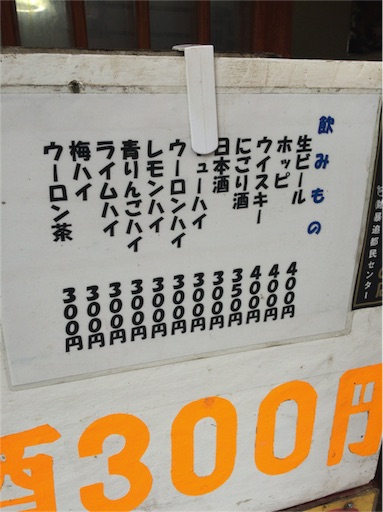 飲みもの
生ビール 400円
ホッピ 400円
ウイスキー 400円
にごり酒 350円
日本酒 300円
ューハイ 300円
ウーロンハイ 300円
レモンハイ 300円
青りんごハイ 300円
ライムハイ 300円
梅ハイ 300円
ウーロン茶 300円
暴追都民センター
酒300円